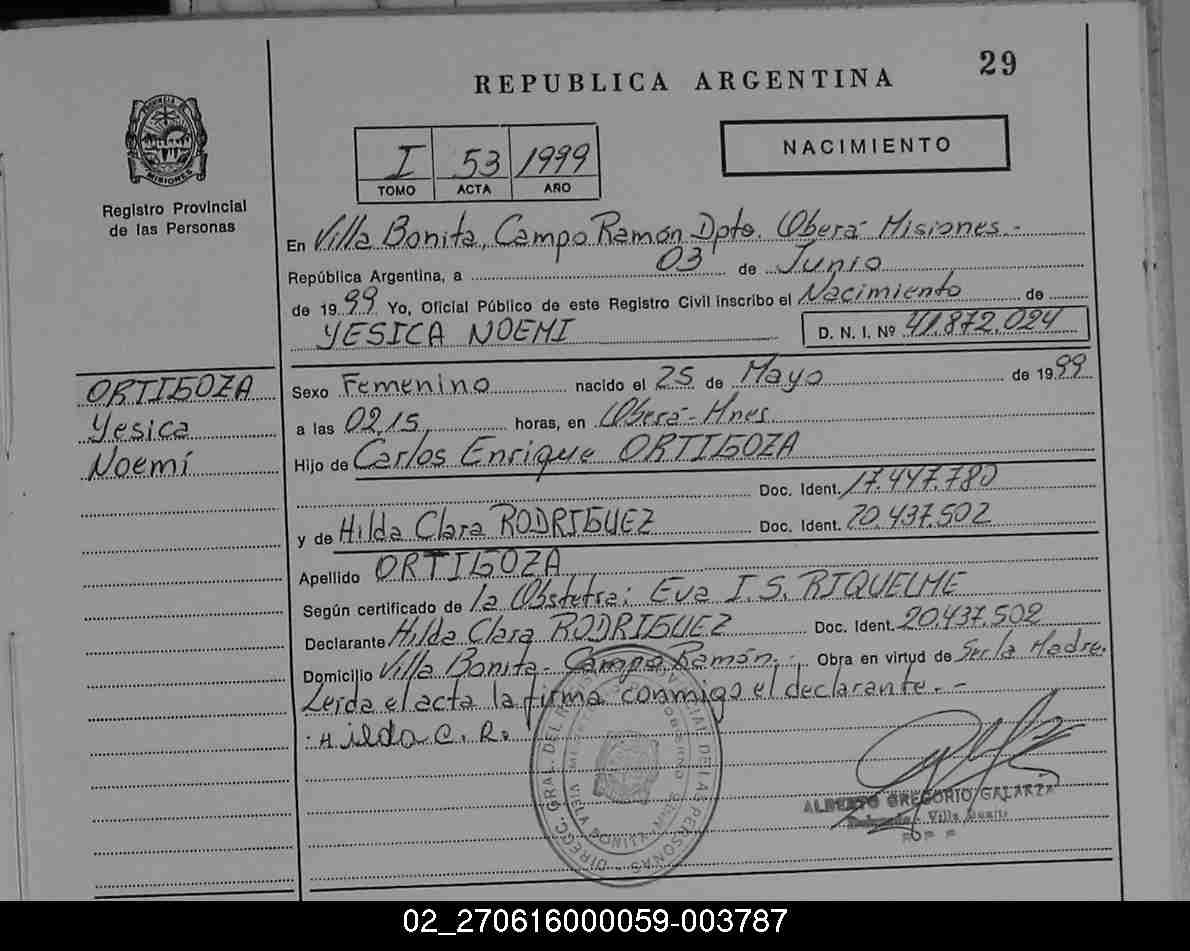 29
REPUBLICA ARGENTINA
PROVINCIA DE
MISIONES
Registro Provincial
de las Personas
I 53 1999
TOMO ACTA AÑO
NACIMIENTO
En Villa Bonita, Campo Ramón Dpto. Oberá Misiones.-
República Argentina, a 03 de Junio
de 1999 Yo, Oficial Público de este Registro Civil inscribo el Nacimiento de
YESICA NOEMI D. N. I. Nº 41.872.024
ORTIGOZA
Yesica
Noemí
Sexo Femenino nacido el 25 de Mayo de 1999
a las 02,15 horas, en Oberá-Mnes
Hijo de Carlos Enrique ORTIGOZA
Doc. Ident. 17.447.780
y de Hilda Clara RODRIGUEZ Doc. Ident. 20.437.502
Apellido ORTIGOZA
Según certificado de la Obstetra: Eva I.S. RIQUELME
Declarante Hilda Clara RODRIGUEZ Doc. Ident. 20.437.502
Domicilio Villa Bonita- Campo Ramón.- Obra en virtud de Ser la Madre.
Leída el acta la firma conmigo el declarante.-
Hilda C. R.
DIRECC. GRAL. DEL REG. PROVINCIAL DE LAS PERSONAS
VILLA BONITA - MNES
ALBERTO GREGORIO GALARZA
Villa Bonita
02_270616000059-003787